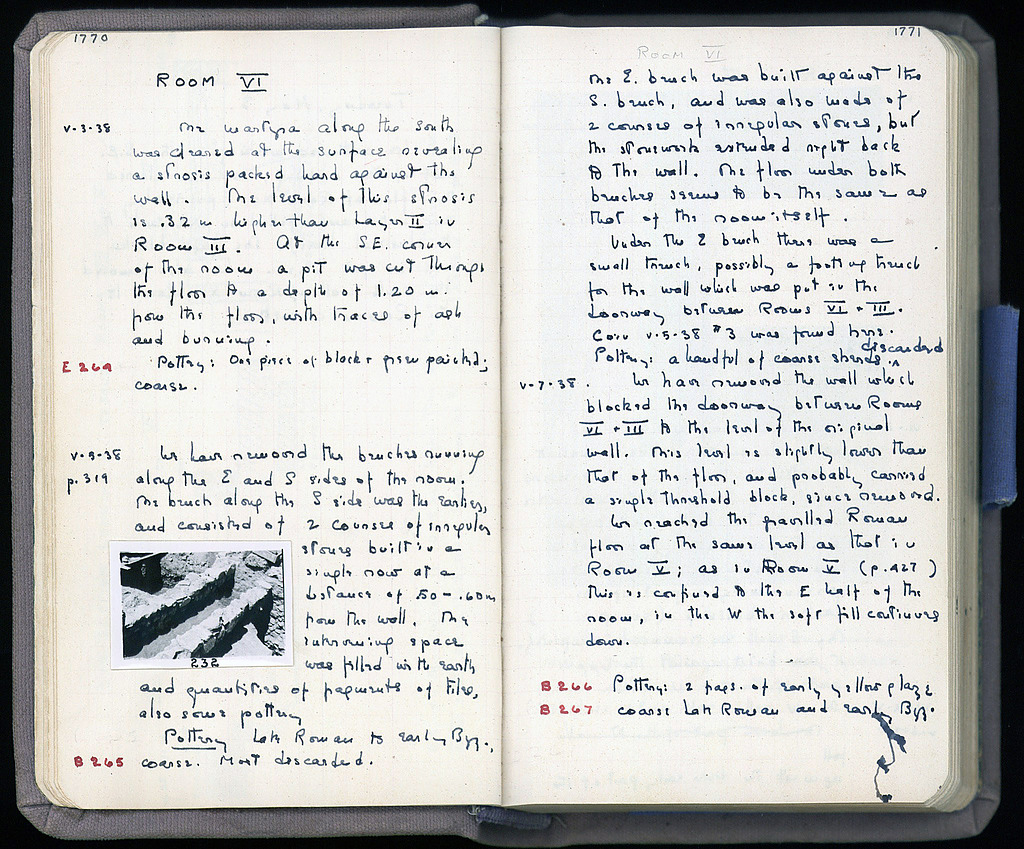 1770
ROOM VI
V-3-38 The martyra along the south
was cleared at the surface revealing
a strosis packed hard against the
wall. The level of this strosis
is .32 m higher than Layer II in
Room III. At the SE. corner
of the room a pit was cut through
the floor to a depth of 1.20 m.
from the floor, with traces of ash
and burning.
Pottery: One piece of black + green painted;
coarse.
V-5-38 We have removed the benches running
p. 319 along the E and S sides of the room.
The bench along the S side was the earlier,
and consisted of 2 courses of irregular
stones built in a
single row at a
distance of .50-.60m
from the wall. The
intervening space
was filled with earth
232
and quantities of fragments of tiles,
also some pottery
Pottery Late Roman to early Byz.,
B 265 coarse. Most discarded.
1771
ROOM VI
The E. bench was built against the
S. bench, and was also made of
2 courses of irregular stones, but
the stonework extended right back
to the wall. The floor under both
benches seems to be the same as
that of the room itself.
Under the E bench there was a
small trench, possibly a footing trench
for the wall which was put in the
doorway between Rooms VI + III.
Coin V-5-38 #3 was found here.
Pottery: a handful of coarse sherds. discarded
V-7-38. We have removed the wall which
blocked the doorway between Rooms
VI + III to the level of the original
wall. This level is slightly lower than
that of the floor, and probably carried
a single threshold block, since removed.
We reached the gravelled Roman
floor at the same level as that in
Room V; as in Room V (p. 427)
this is confined to the E half of the
room, in the W the soft fill continues
down.
B 266 Pottery: 2 frags. of early yellow glaze
B 267 coarse Late Roman and early Byz.